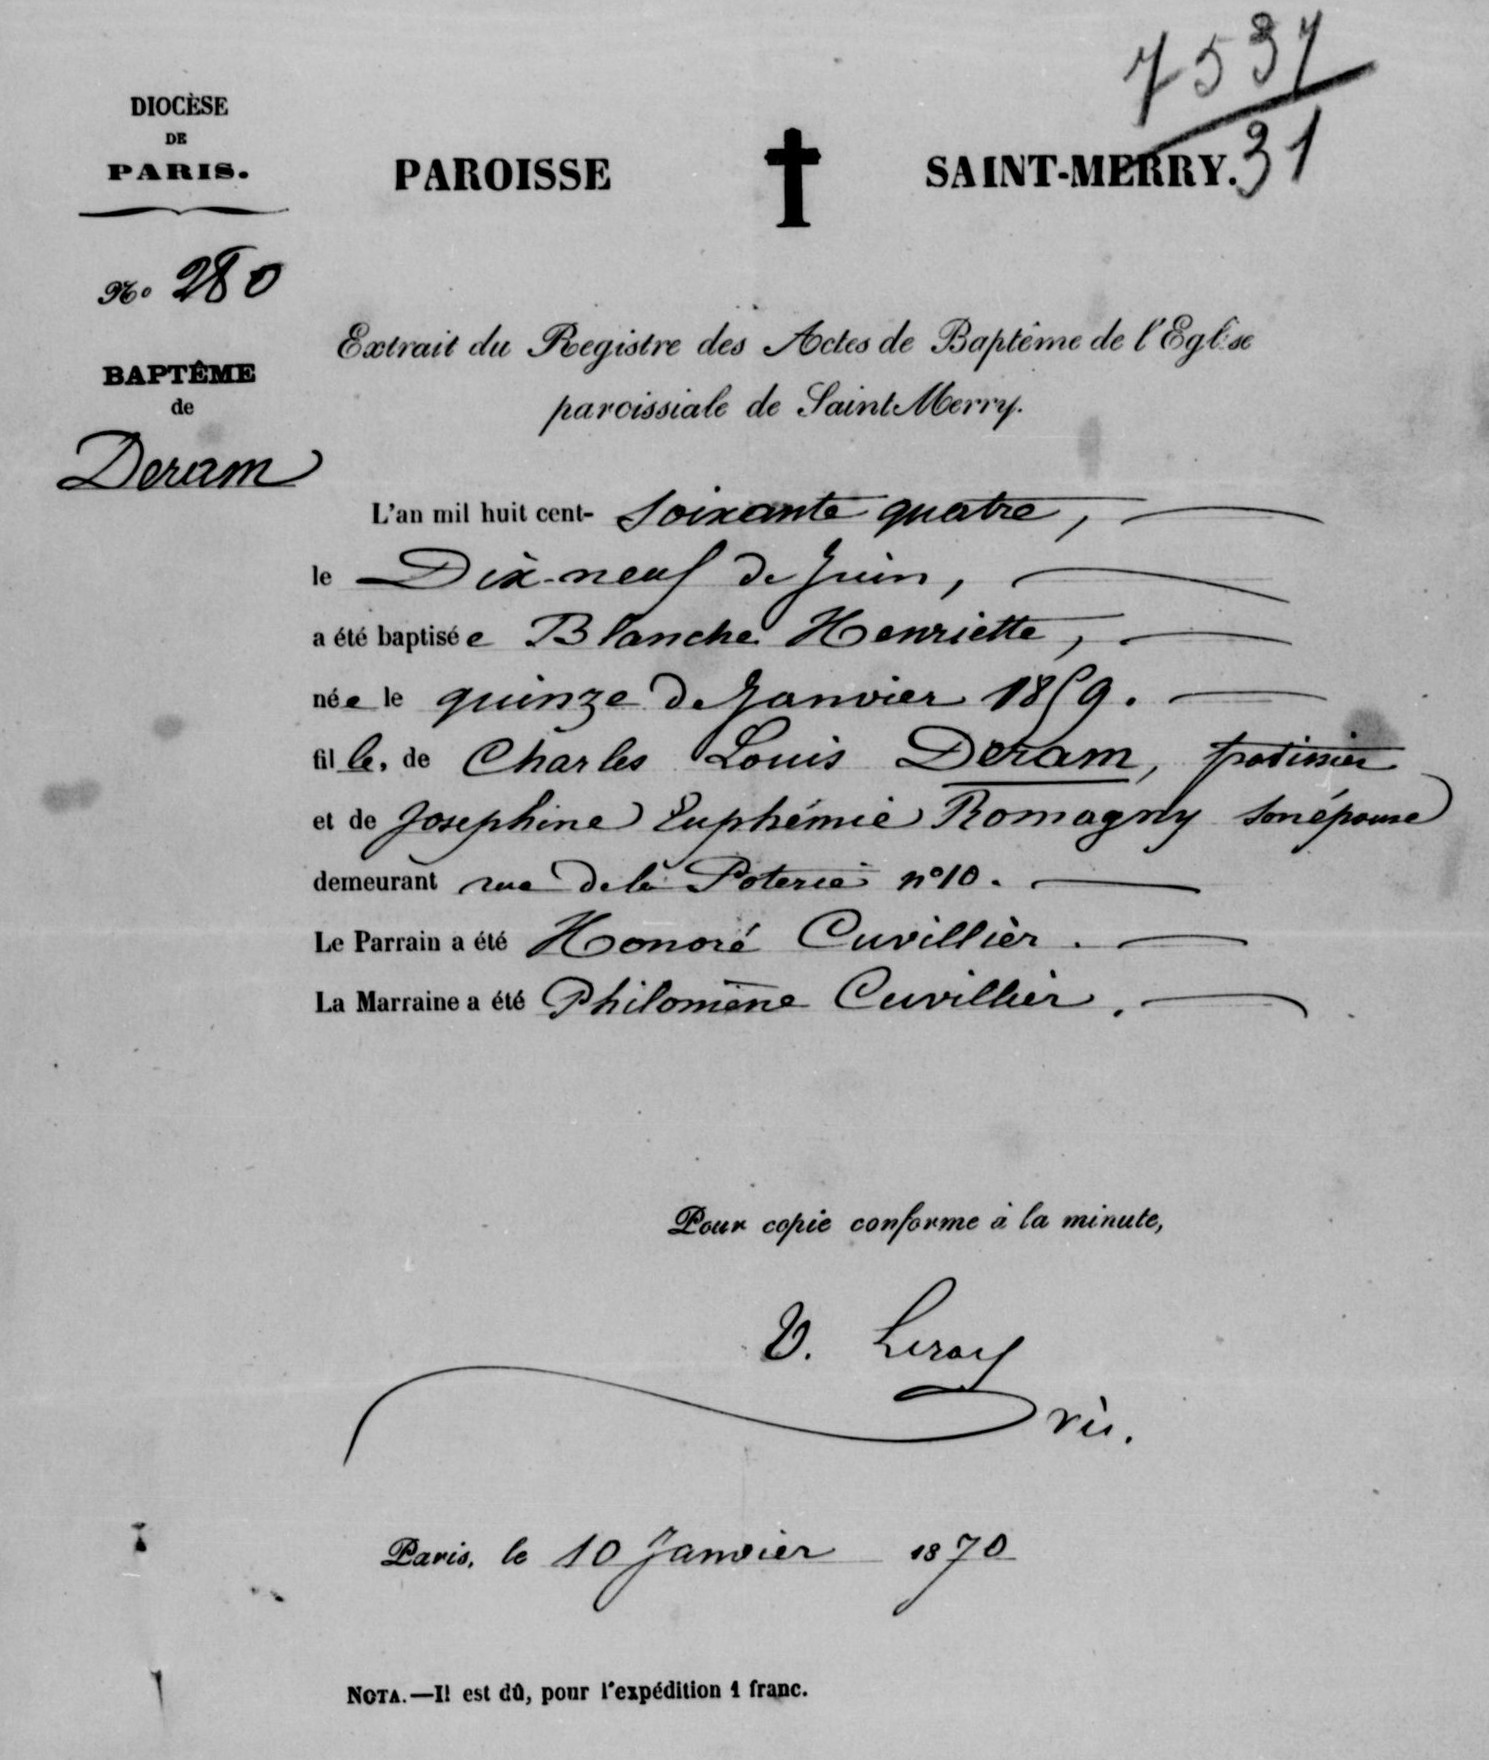 7537
31
DIOCÈSE
DE
PARIS.
PAROISSE SAINT-MERRY.
No. 280
BAPTÊME
de
Deram
Extrait du Registre des Actes de Baptême de l'Eglise
paroissiale de Saint Merry.
L'an mil huit cent- soixante quatre,
le Dix-neuf de Juin,
a été baptisée Blanche Henriette,
née le quinze de Janvier 1859.
fille, de Charles Louis Deram, patissier
et de Josephine Euphémie Romagny son épouse
demeurant rue de la Poterie nº 10.
Le Parrain a été Honoré Cuvillièr.
La Marraine a été Philomène Cuvillièr.
Pour copie conforme à la minute,
V. Leroy
Paris, le 10 Janvier 1870
NOTA.—Il est dû, pour l'expédition 1 franc.